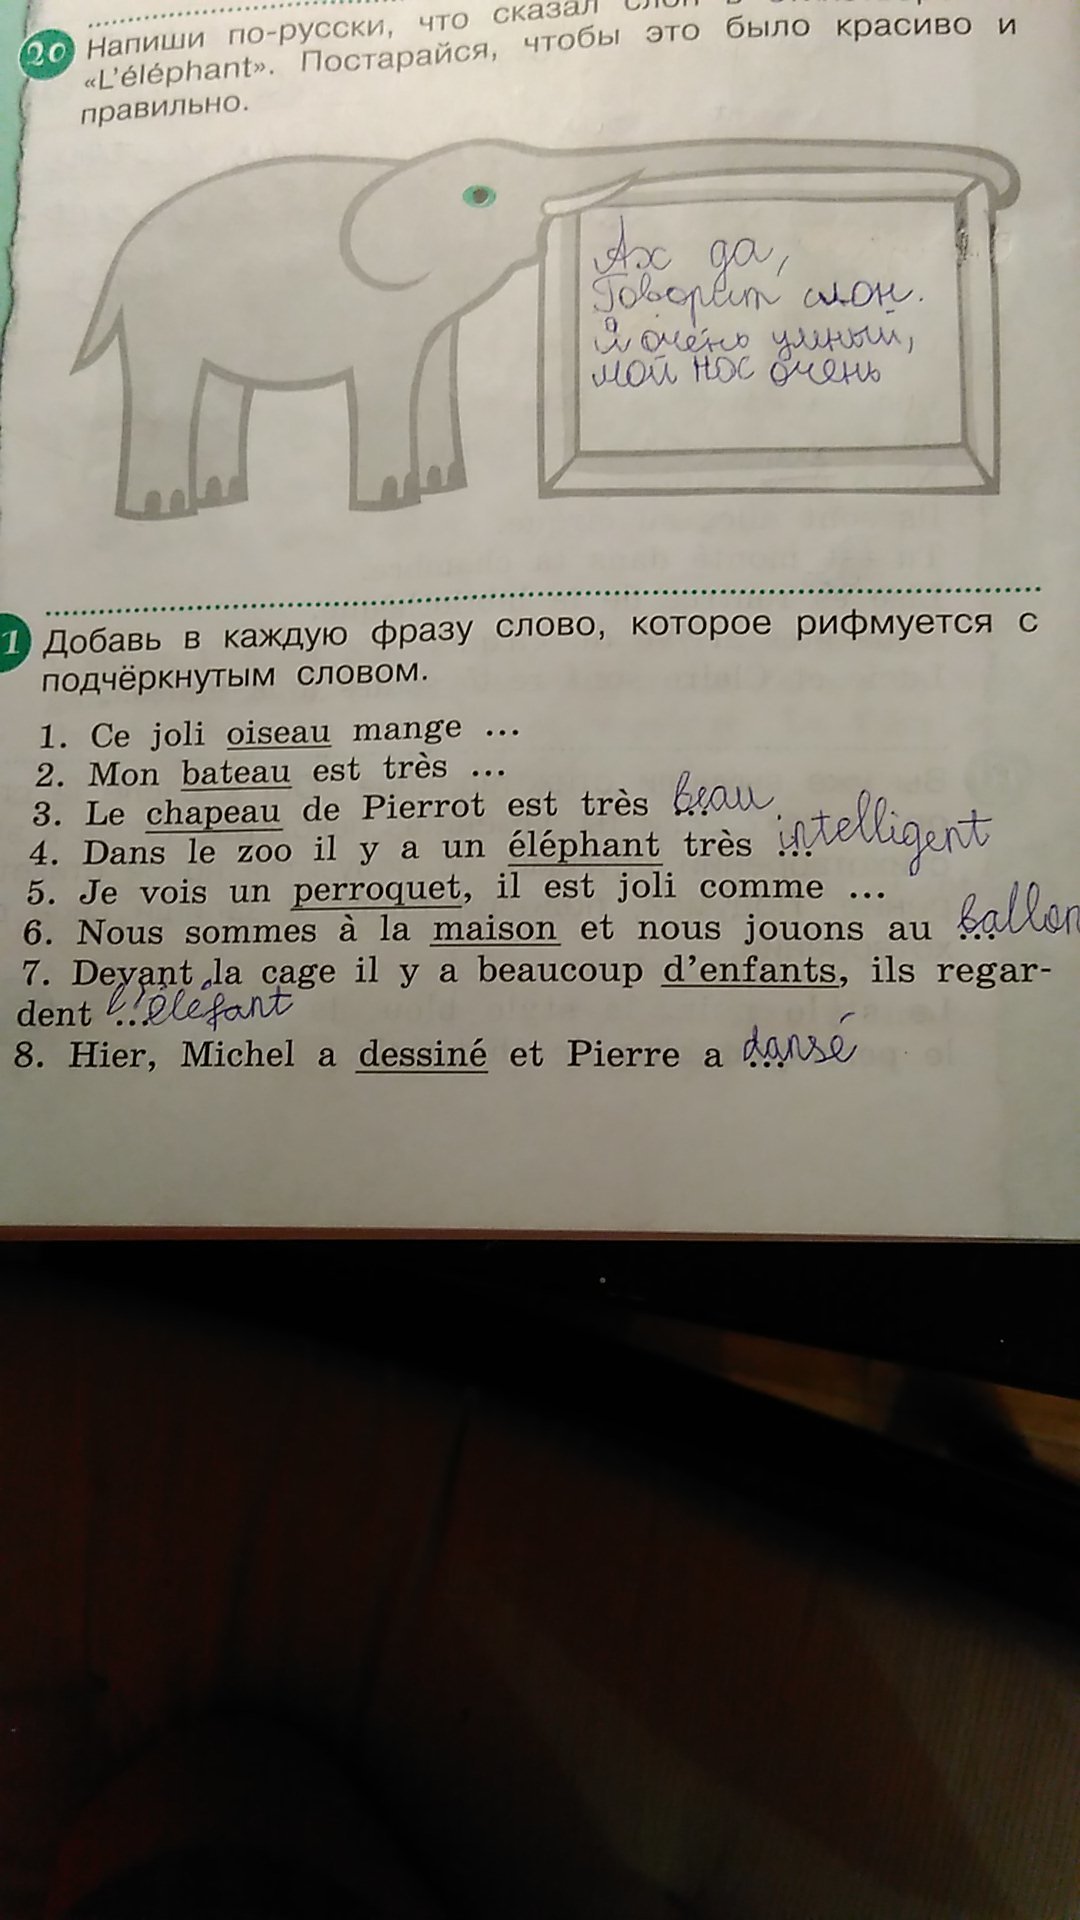 20 Напиши по-русски, что сказал слон в
«L'éléphant». Постарайся, чтобы это было красиво и
правильно.
Ах да,
Говорит слон.
Я очень умный,
мой нос очень
1 Добавь в каждую фразу слово, которое рифмуется с
подчёркнутым словом.
1. Ce joli oiseau mange ...
2. Mon bateau est très ...
3. Le chapeau de Pierrot est très ... beau
4. Dans le zoo il y a un éléphant très ... intelligent
5. Je vois un perroquet, il est joli comme ...
6. Nous sommes à la maison et nous jouons au ... ballon
7. Devant la cage il y a beaucoup d'enfants, ils regar-
dent ... l'éléfant
8. Hier, Michel a dessiné et Pierre a ... dansé